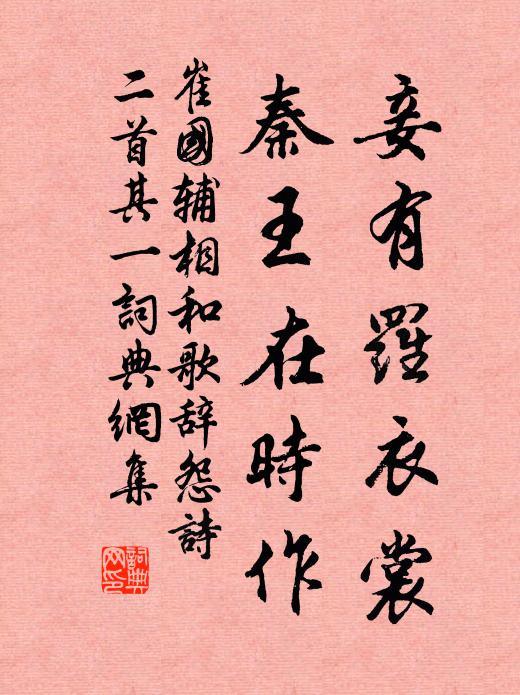 妾有羅衣裳
秦王在時作
崔國辅相和歌辞怨詩
二首其一詞典網集
詞典網印